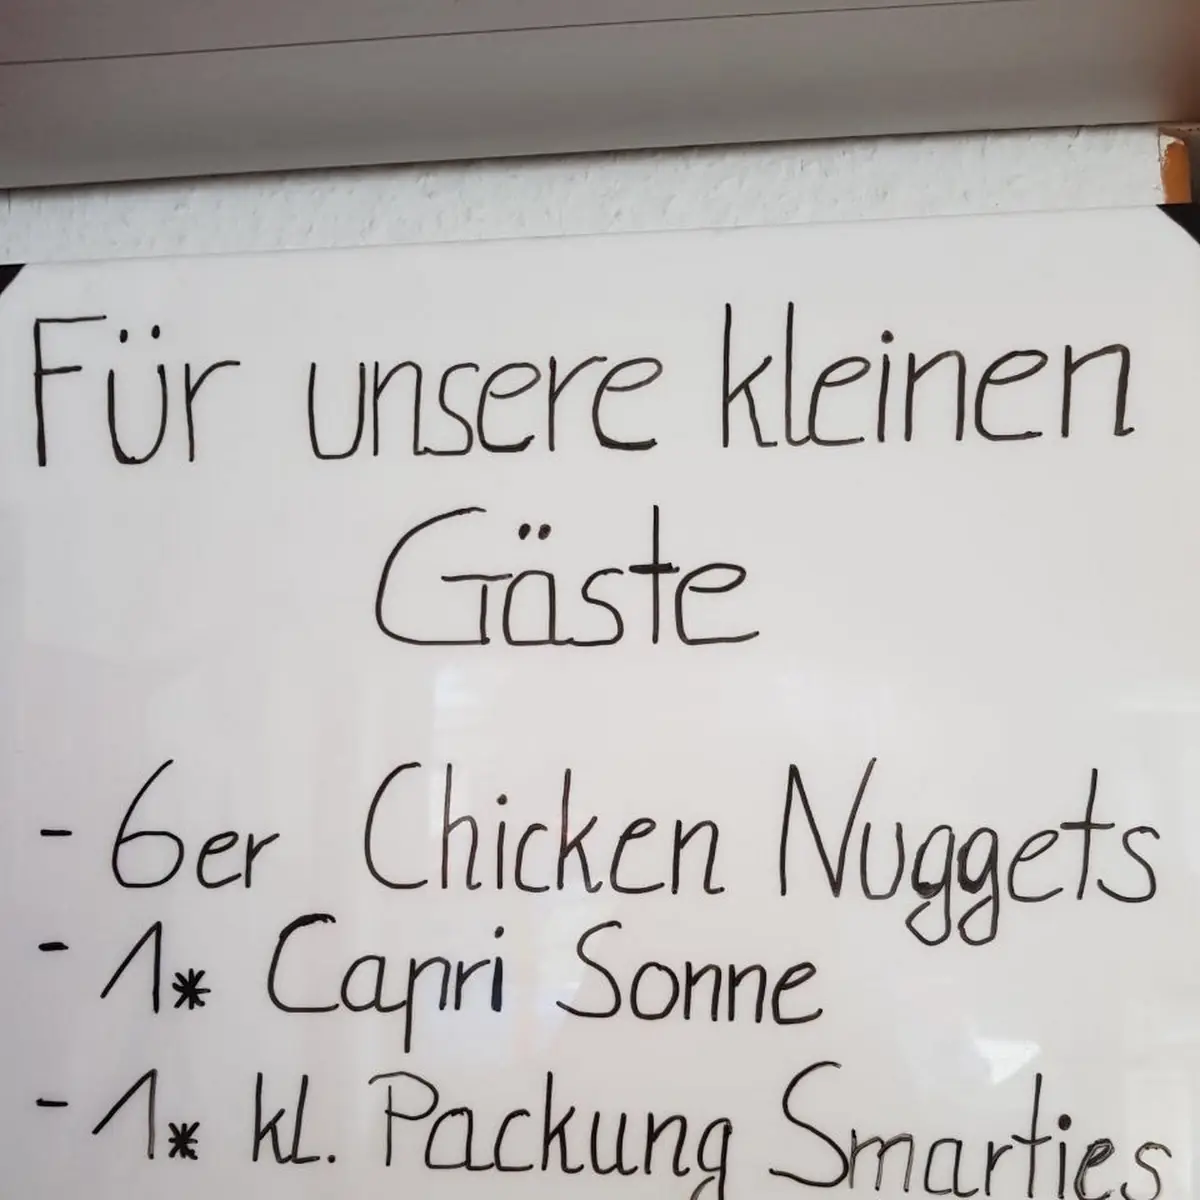 Für unsere kleinen
Gäste
- 6er Chicken Nuggets
- 1* Capri Sonne
- 1* kl. Packung Smarties